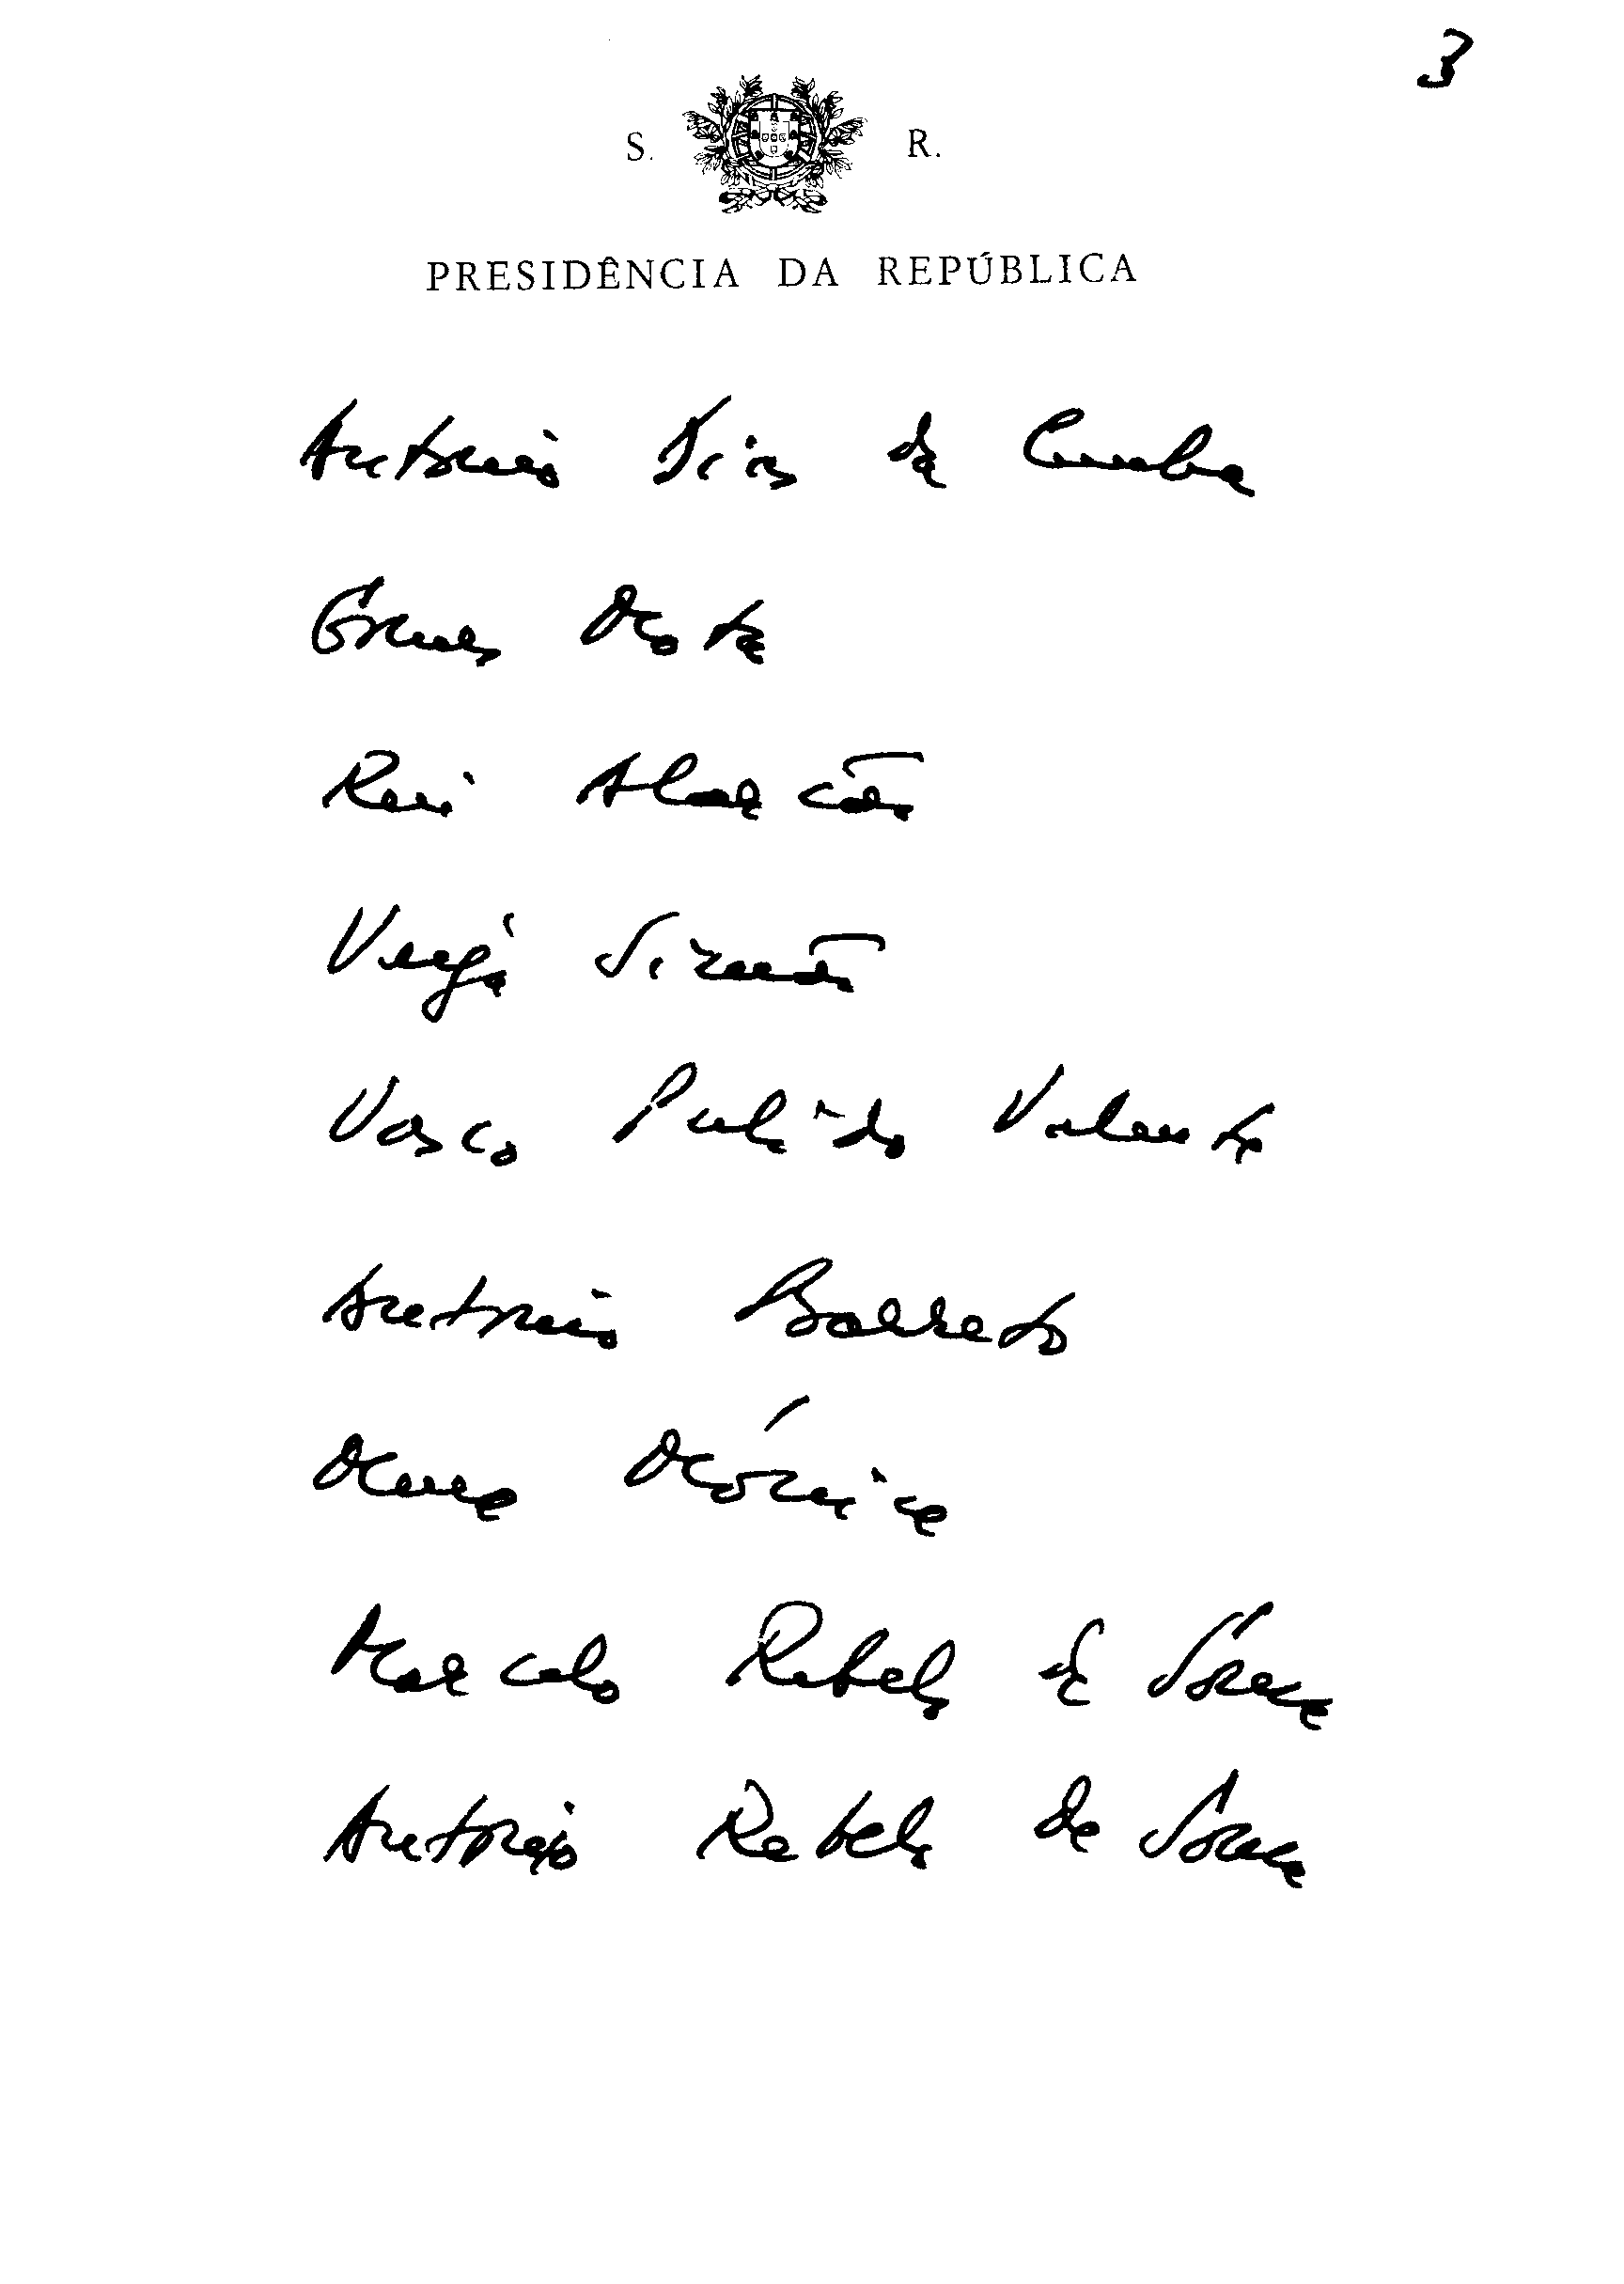 3
S. R.
PRESIDÊNCIA DA REPÚBLICA
António Dias da Cunha
Gomes Mota
Rui Alarcão
Veiga Simão
Vasco Pulido Valente
António Barreto
Mónica
Marcelo Rebelo de Sousa
António Rebelo de Sousa